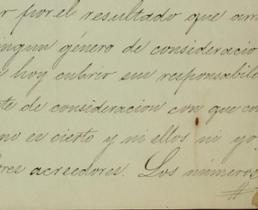 r por el resultado que arr
ingun género de consideracio
s hoy cubrir su responsabili
te de consideracion con que co
no es cierto y ni ellos ni yo
res acreedores. Los numeros